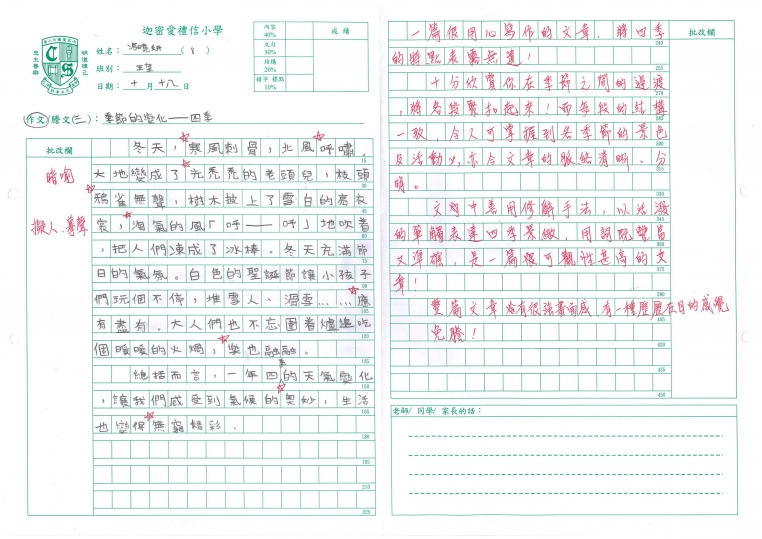 迦密愛禮信小學
明道律己
忠主善群
姓名：馮曉妍（8）
班別：三望
日期：十月十八日
內容 40%
文句 30%
結構 20%
錯字 標點 10%
成績
作文/謄文(三)：季節的變化──四季
批改欄
冬天，寒風刺骨，北風呼嘯。
大地變成了光禿禿的老頭兒，枝頭
鴉雀無聲，樹木披上了雪白的亮衣
裳，淘氣的風「呼──呼」地吹着
，把人們凍成了冰棒。冬天充滿節
日的氣氛。白色的聖誕節讓小孩子
們玩個不停，堆雪人、滑雪……應
有盡有。大人們也不忘圍着爐邊吃
個暖暖的火焗，樂也融融。
總括而言，一年四季的天氣變化
，讓我們感受到氣候的奧妙，生活
也變得無窮精彩。
暗喻
擬人、摹聲
15
45
60
75
90
105
120
135
150
165
180
195
210
225
批改欄
一篇很用心寫作的文章，將四季
的特點表露無遺！
十分欣賞你在季節之間的過渡
，將各段緊扣起來！而每段的結構
一致，令人可掌握到各季節的景色
及活動外，亦令文章的脈絡清晰、分
明。
文內中善用修辭手法，以活潑
的筆觸表達四季景緻，用詞既豐富
又準確，是一篇很可觀性甚高的文
章！
雙篇文章給有很強畫面感，有一種歷歷在目的感覺
免謄！
240
255
270
285
300
315
330
345
360
375
390
405
420
435
450
老師/ 同學/ 家長的話：